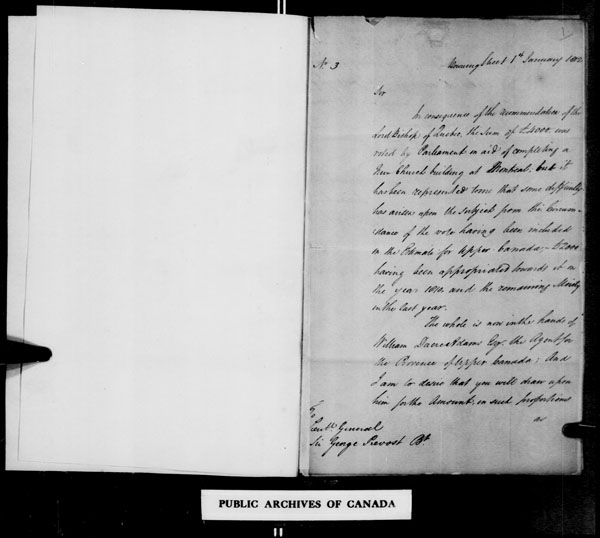 1
No 3
Downing Street 1st January 1812
Sir
In consequence of the recommendation of the
Lord Bishop of Quebec, the Sum of £4000 was
voted by Parliament in aid of completing a
New Church building at Montreal, but it
has been represented to me that some difficulty
has arisen upon the subject from the Circum-
stance of the vote having been included
in the Estimate for Upper Canada; £2000
having been appropriated towards it in
the year 1810 and the remaining Moiety
in the last year.
The whole is now in the hands of
William Dacre Adams Esqr. the Agent for
the Province of Upper Canada; And
I am to desire that you will draw upon
him for the Amount, in such proportions
as
To
Lieutt. General
Sir George Prevost Bt.
PUBLIC ARCHIVES OF CANADA